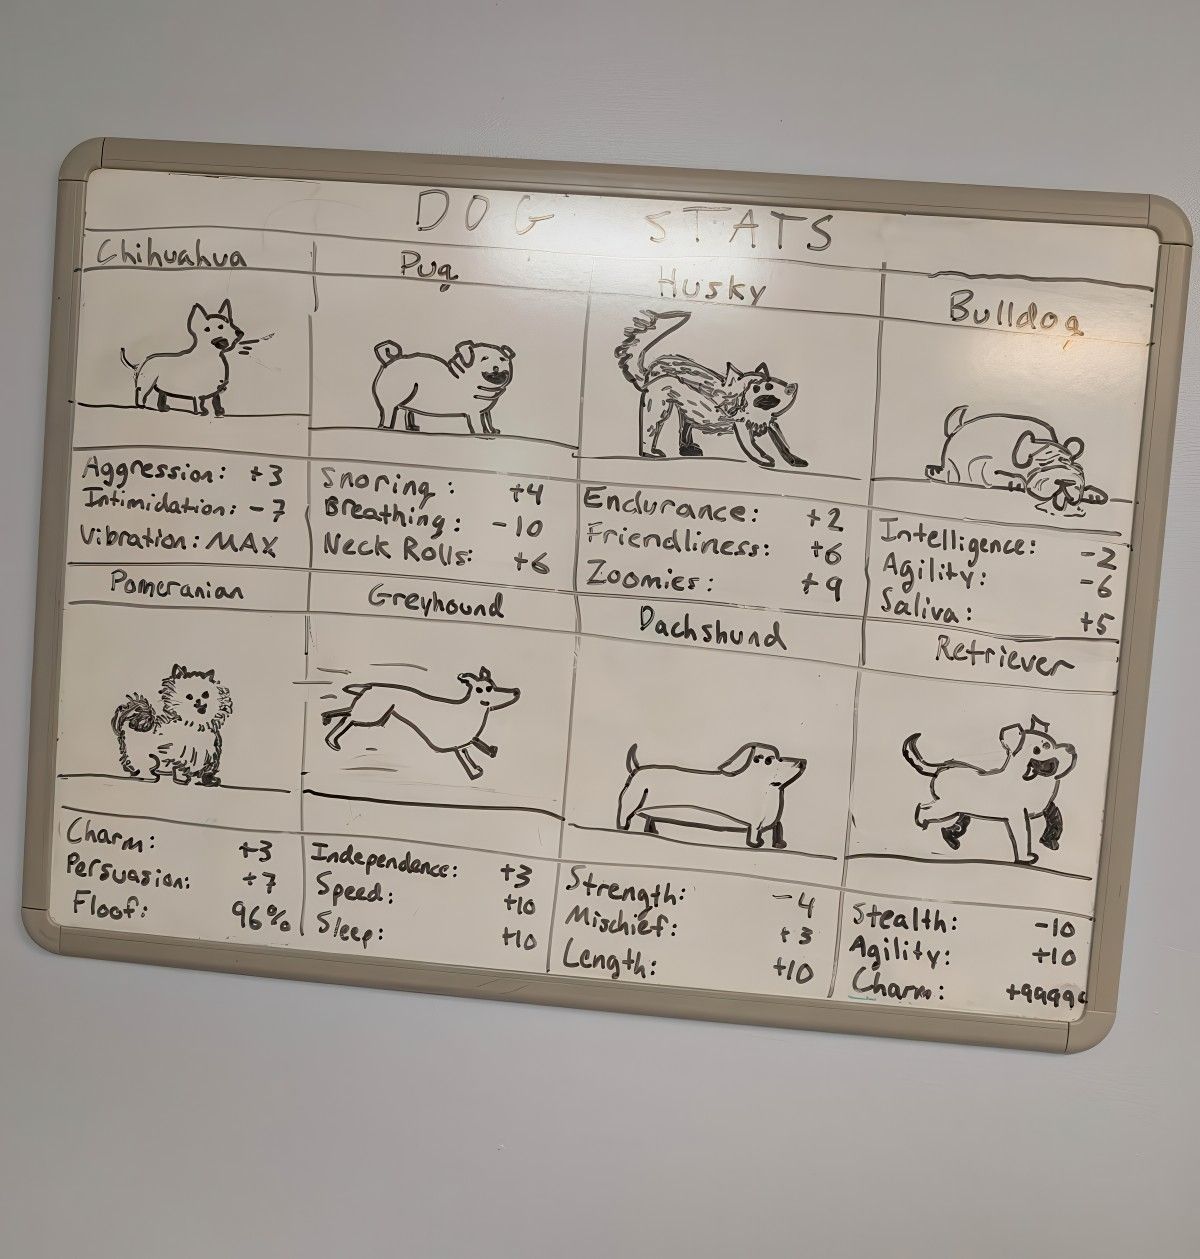 DOG STATS
Chihuahua
Pug
Husky
Bulldog
Aggression: +3
Intimidation: -7
Vibration: MAX
Snoring: +4
Breathing: -10
Neck Rolls: +6
Endurance: +2
Friendliness: +6
Zoomies: +9
Intelligence: -2
Agility: -6
Saliva: +5
Pomeranian
Greyhound
Dachshund
Retriever
Charm: +3
Persuasion: +7
Floof: 96%
Independance: +3
Speed: +10
Sleep: +10
Strength: -4
Mischief: +3
Length: +10
Stealth: -10
Agility: +10
Charm: +99999